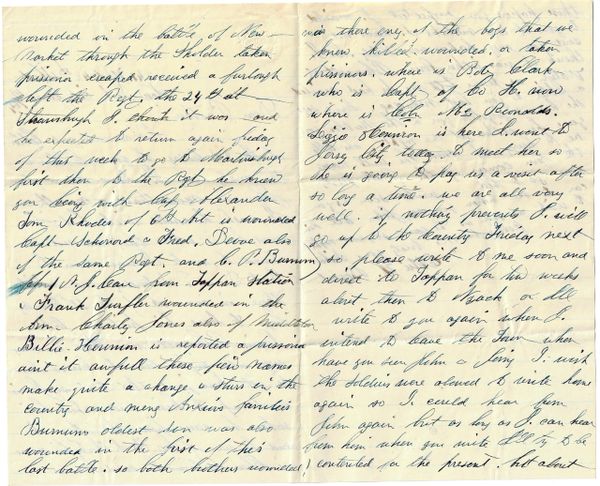 wounded in the battle of New
Market through the Sholder taken
prisoner escaped received a furlough
left the Regt. the 24th at
I it was and
he expected to return again friday
of this week to go to Martinsburgh
first then to the Regt he knew
you being with Cap Alexander
Tom Rhodes of 6th Art is wounded
Capt & Fred. also
of the same Regt. and C. P. Burnum
from Tappan Station
Frank wounded in the
Arm Charley Jones also of
Billie Hennion is reported a prisoner
aint it awfull these few names
make quite a change & stir in the
country and many Anxius families
Burnums oldest son was also
wounded in the first of this
last battle. so both brothers wounded
was there any of the boys that we
knew killed. wounded. or taken
prisoners. where is Bob Clark
who is Capt of Co H. now
where is Mc Reonalds.
Lizzie Hennion is here I went to
Jersey City today. to meet her so
she is going to pay us a visit after
so long a time. we are all very
well. if nothing prevents I will
go up to the County Friday next
so please write to me soon and
direct to Tappan for two weeks
about then to Nyack or Ill
write to you again when I
intend to leave the Town when
have you seen John & I wish
the soldiers were alowed to write home
again so I could hear from
John again but as long as I can hear
from him when you write I'll try to be
contented for the present. but about